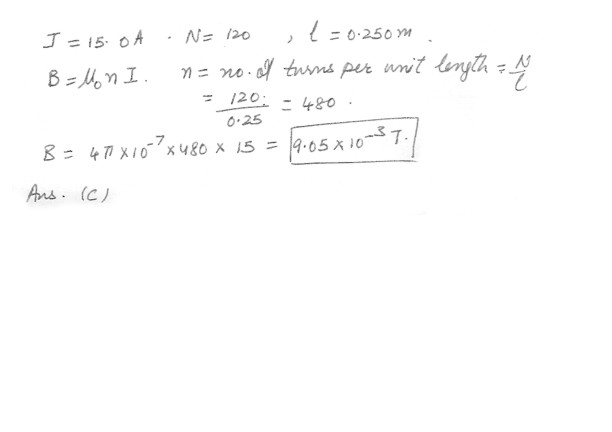 I = 15.0A . N = 120 , l = 0.250m .
B = μ₀nI. n = no. of turns per unit length = N/l
= 120/0.25 = 480 .
B = 4π×10⁻⁷×480 × 15 = 9.05×10⁻³ T.
Ans. (C)